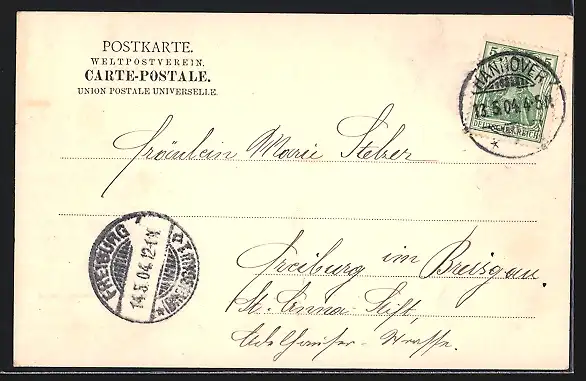 POSTKARTE.
WELTPOSTVEREIN.
CARTE-POSTALE.
UNION POSTALE UNIVERSELLE.
5 5
DEUTSCHES REICH
HANNOVER
13.5.04.4-5N.
*
Fräulein Marie Stelzer
FREIBURG
14.5.04.12-1N.
Freiburg im Breisgau.
St. Anna-Stift,
Adelhauser-Strasse.